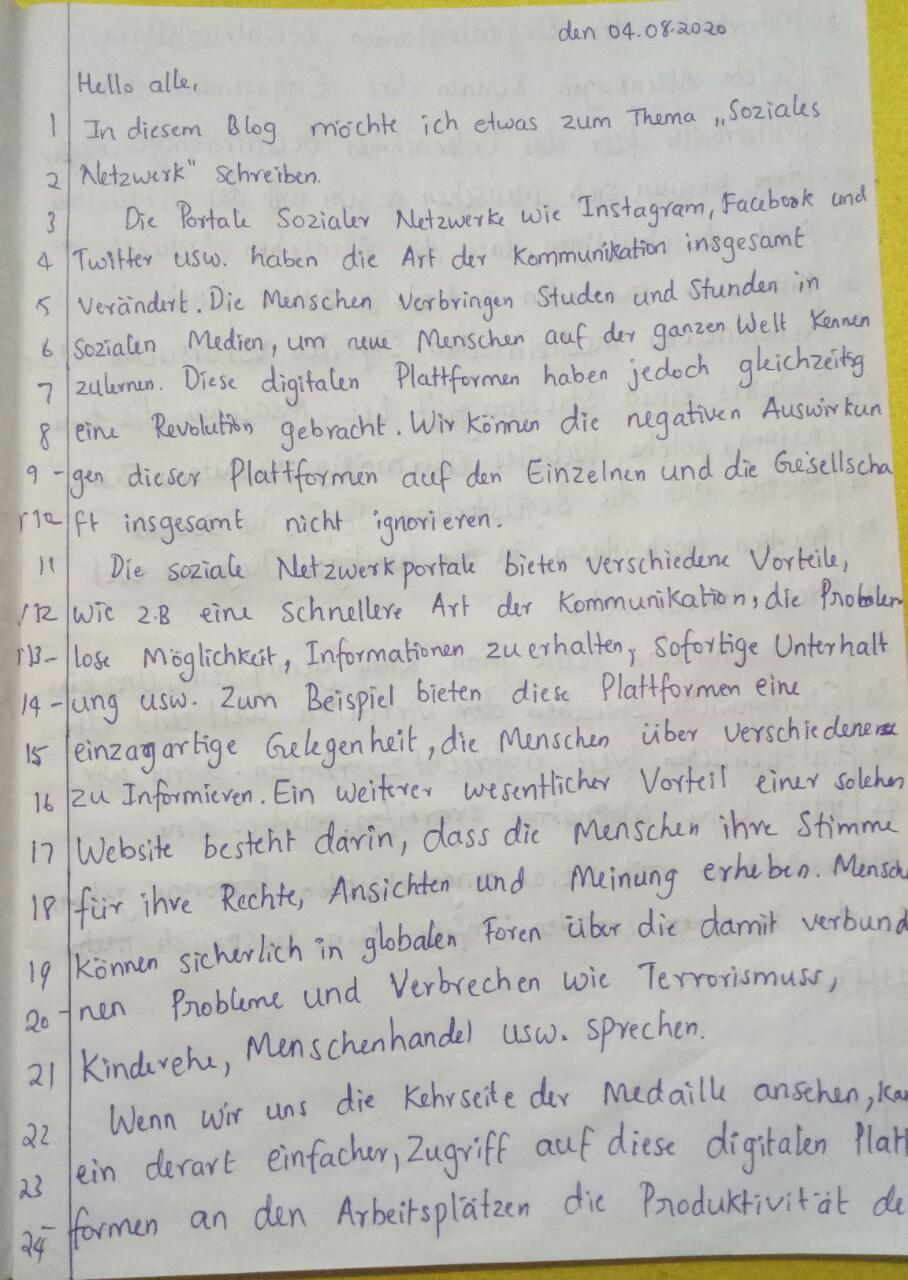 den 04.08.2020
Hello alle,
1 In diesem Blog möchte ich etwas zum Thema „Soziales
2 Netzwerk" schreiben.
3 Die Portale Sozialer Netzwerke wie Instagram, Facebook und
4 Twitter usw. haben die Art der Kommunikation insgesamt
5 verändert. Die Menschen verbringen Studen und Stunden in
6 sozialen Medien, um neue Menschen auf der ganzen Welt kennen
7 zulernen. Diese digitalen Plattformen haben jedoch gleichzeitig
8 eine Revolution gebracht. Wir können die negativen Auswirkun
9 -gen dieser Plattformen auf den Einzelnen und die Gesellscha
10 ft insgesamt nicht ignorieren.
11 Die soziale Netzwerkportale bieten verschiedene Vorteile,
12 wie z.B eine schnellere Art der Kommunikation, die Problem
13 - lose Möglichkeit, Informationen zu erhalten, sofortige Unterhalt
14 -ung usw. Zum Beispiel bieten diese Plattformen eine
15 einzagartige Gelegenheit, die Menschen über verschiedene
16 zu Informieren. Ein weiterer wesentlicher Vorteil einer solchen
17 Website besteht darin, dass die Menschen ihre Stimme
18 für ihre Rechte, Ansichten und Meinung erheben. Mensch
19 können sicherlich in globalen Foren über die damit verbund
20 -nen Probleme und Verbrechen wie Terrorismuss,
21 Kinderehe, Menschenhandel usw. sprechen.
22 Wenn wir uns die Kehrseite der Medaille ansehen, ka
23 ein derart einfacher, Zugriff auf diese digitalen Platt
24 - formen an den Arbeitsplätzen die Produktivität de